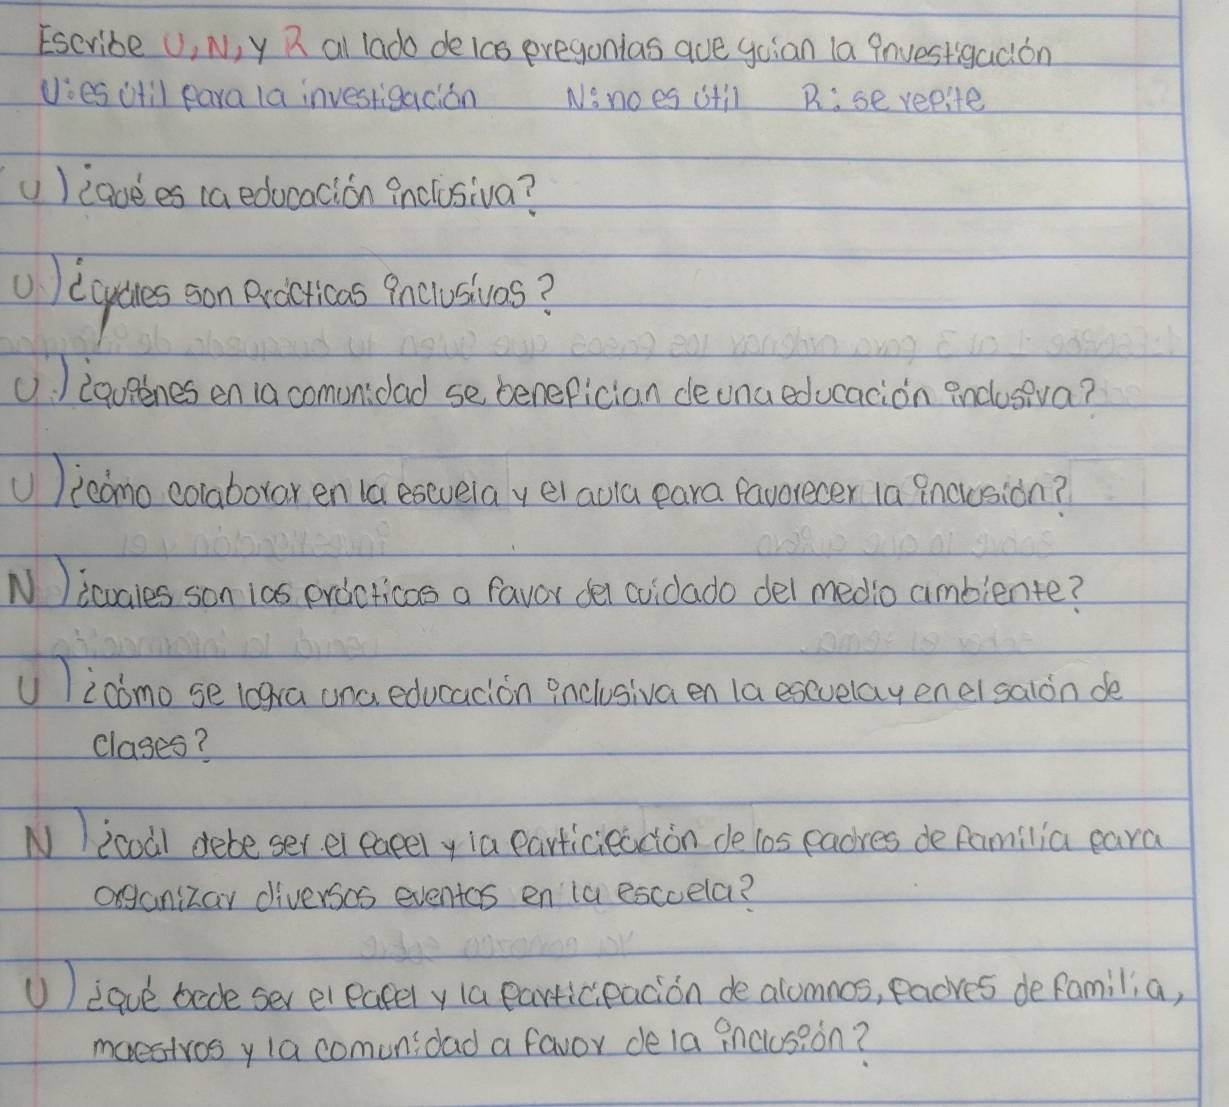 Escribe U, N, y R al lado de las preguntas que guian la investigación
U: es útil para la investigación N: no es útil R: se repite
U) ¿qué es la educación inclusiva?
U.) ¿cuáles son prácticas inclusivas?
U.) ¿quiénes en la comunidad se benefician de una educación inclusiva?
U) ¿cómo colaborar en la escuela y el aula para favorecer la inclusión?
N) ¿cuales son las prácticas a favor del cuidado del medio ambiente?
U) ¿cómo se logra una educación inclusiva en la escuela y en el salón de
clases?
N) ¿cuál debe ser el papel y la participación de los padres de familia para
organizar diversos eventos en la escuela?
U) ¿qué bede ser el papel y la participación de alumnos, padres de familia,
maestros y la comunidad a favor de la inclusión?